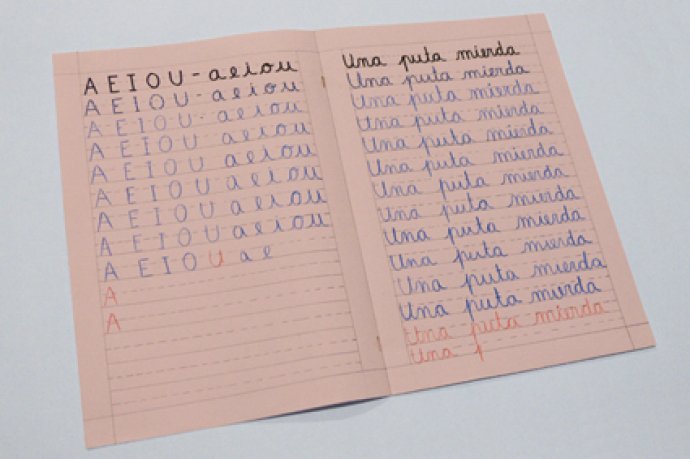 A E I O U - a e i o u
A E I O U - a e i o u
A E I O U - a e i o u
A E I O U - a e i o u
A E I O U a e i o u
A E I O U a e i o u
A E I O U a e i o u
A E I O U a e i o u
A E I O U a e
A
A
Una puta mierda
Una puta mierda
Una puta mierda
Una puta mierda
Una puta mierda
Una puta mierda
Una puta mierda
Una puta mierda
Una puta mierda
Una puta mierda
Una puta mierda
Una puta mierda
Una puta mierda
Una p